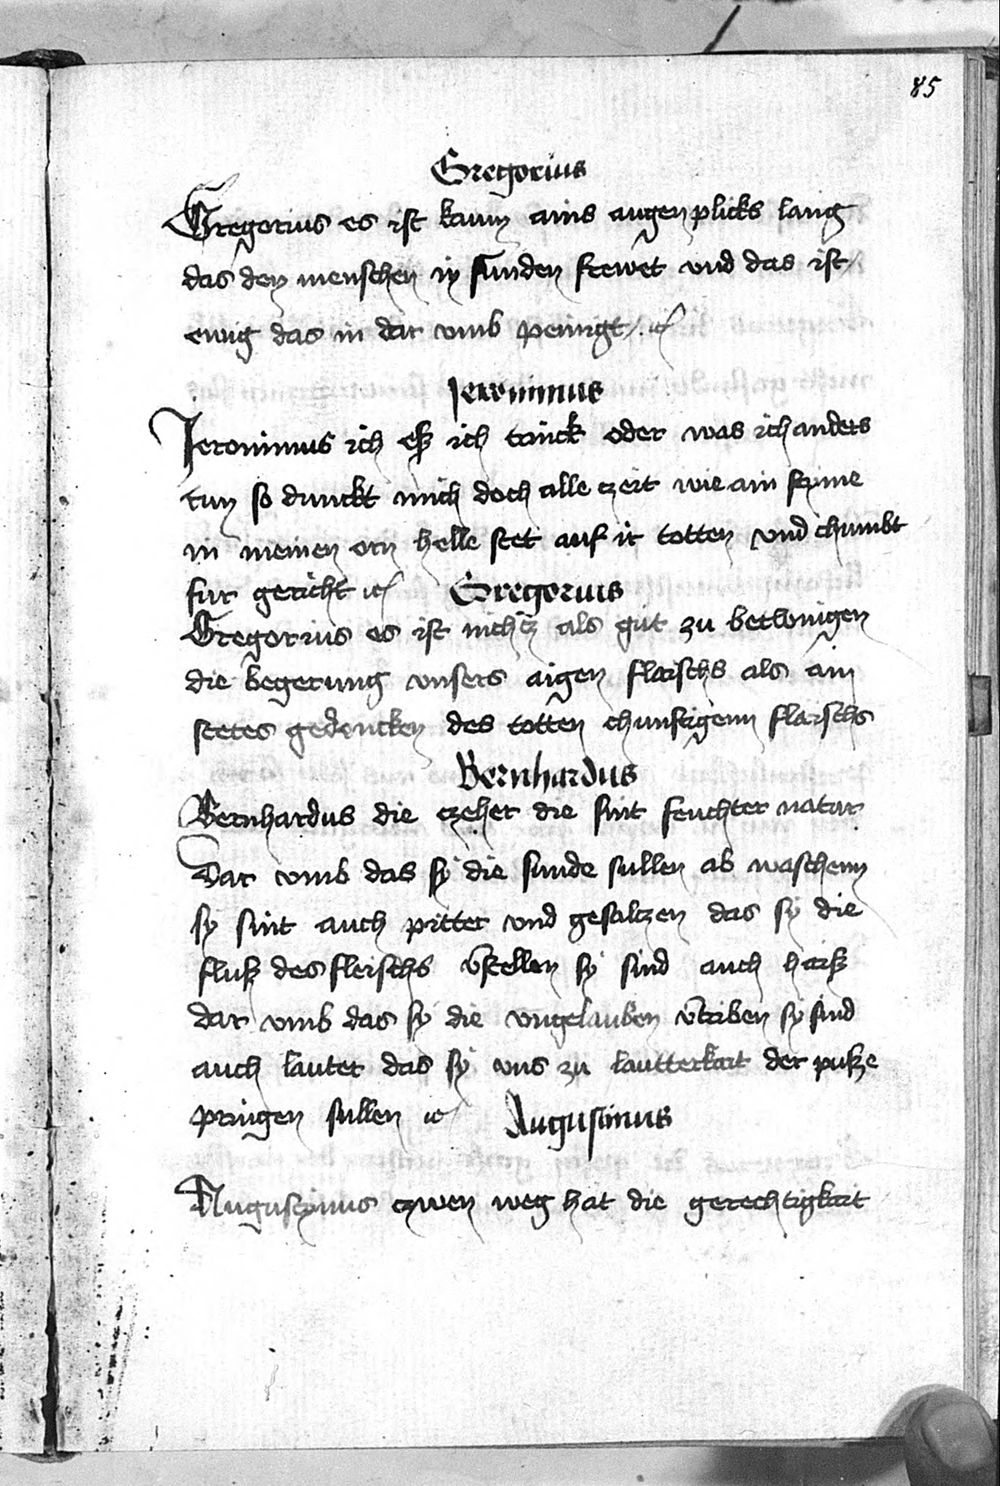 85
Gregorius
Gregorius es ist kaum ains augen plicks lang
das den menschen in sunden frewet vnd das ist
ewig das in dar vmb peinigt
Jeronimus
Jeronimus ich eß ich trinck oder was ich anders
tun so dunckt mich doch alle czeit wie ain stymme
in meinen orn helle stet auf ir totten vnd chumbt
fur gericht Gregorius
Gregorius es ist nichcz als gut zu betwingen
die begerung vnsers aigen flaischs als ain
stetes gedencken des totten chunftigenn flaischs
Bernhardus
Bernhardus die czeher die sint feuchter natur
Dar vmb das sy die sunde sullen ab waschenn
sy sint auch pitter vnd gesalczen das sy die
fluß des fleischs vstellen sy sind auch haiß
dar vmb das sy die vngelauben vtriben sy sind
auch lauter das sy vns zu lautterkait der pusße
pringen sullen Augustinus
Augustinus czwen weg hat die gerechtigkait